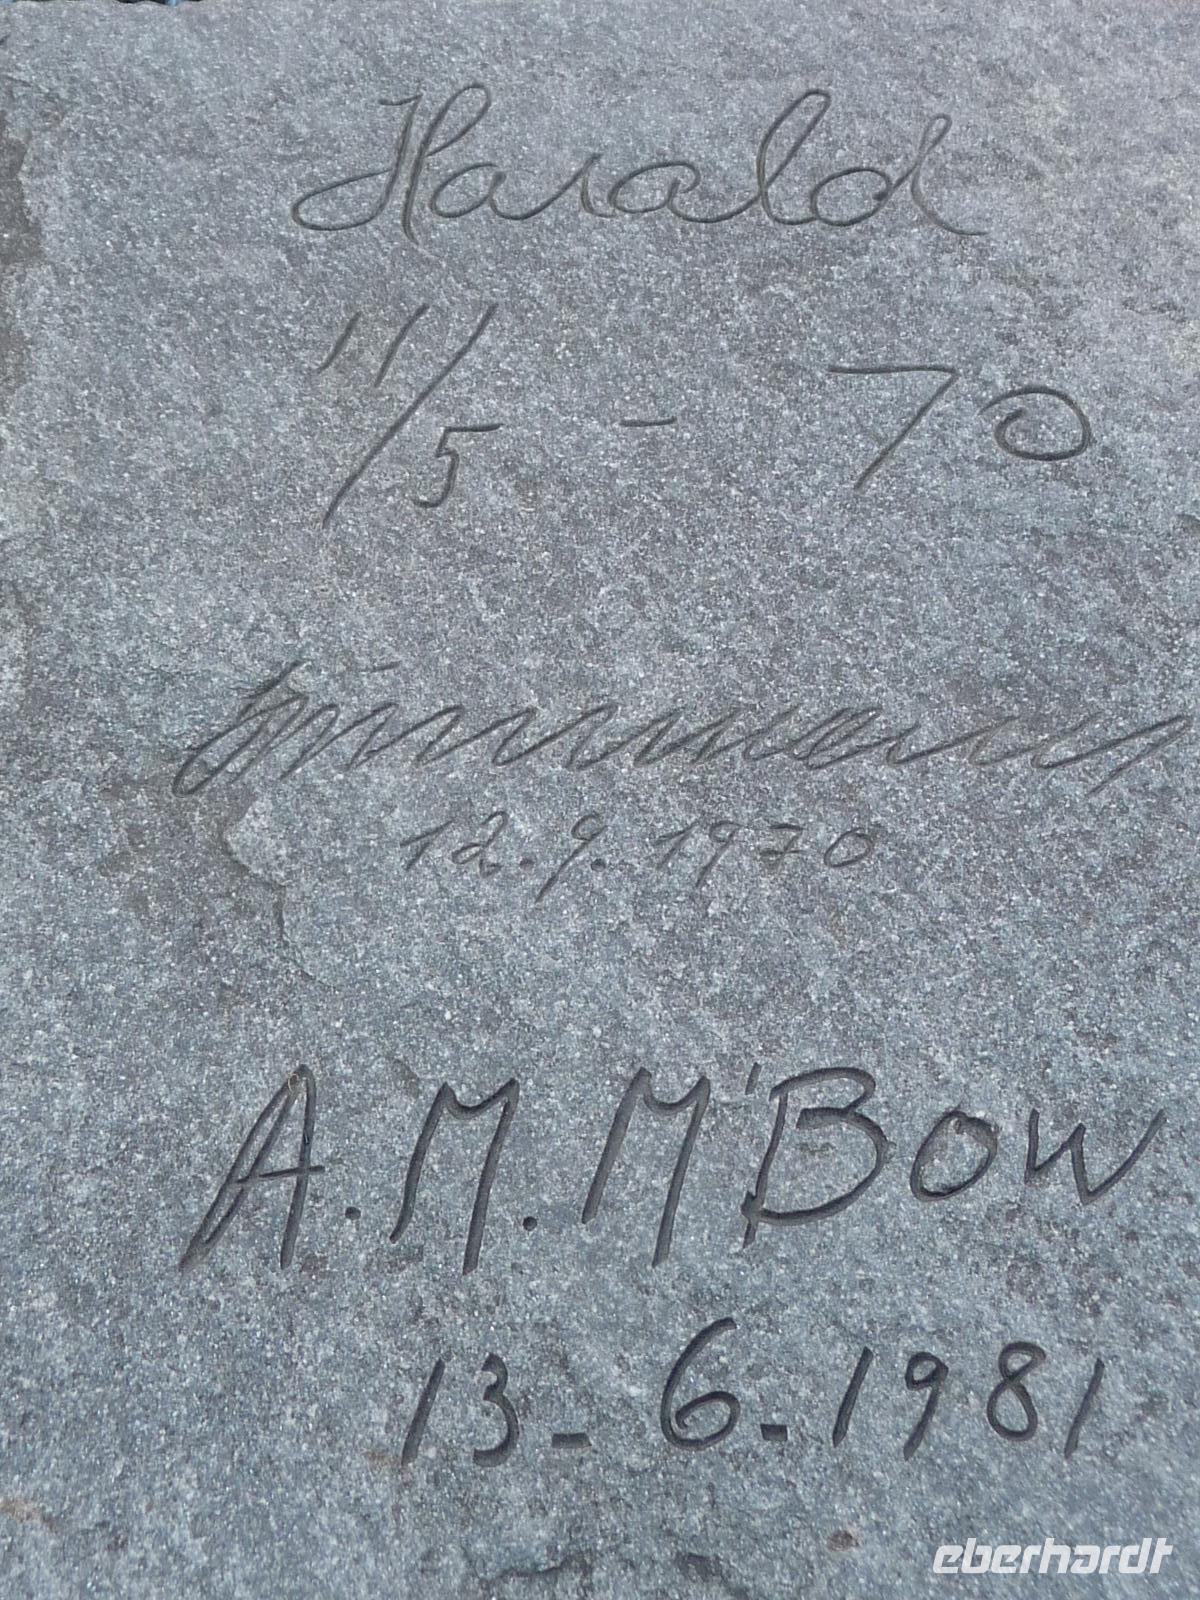 Harald
11/5 - 70
12.9.1970
A.M. M'Bow
13-6-1981
eberhardt